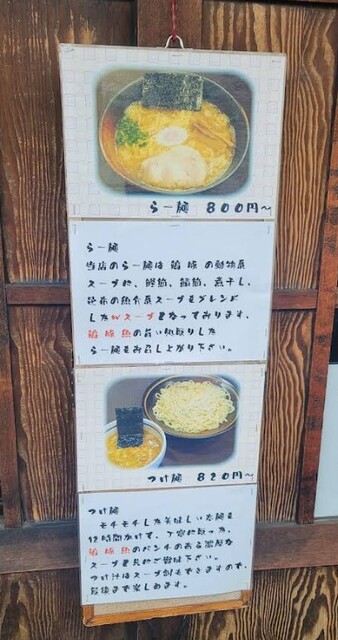 らー麺 800円～
らー麺
当店のらー麺は 鶏 豚 の動物系
スープに、鰹節、鯖節、煮干し、
昆布の魚介系スープをブレンド
したWスープとなっております。
鶏 豚 魚の旨い所取りした
らー麺をお召し上がり下さい。
つけ麺 820円～
つけ麺
モチモチした美味しいな麺を
12時間かけず、丁寧に取った、
鶏 豚 魚のパンチのある濃厚な
スープと共にご賞味下さい。
つけ汁はスープ割もできますので、
最後まで楽しめます。